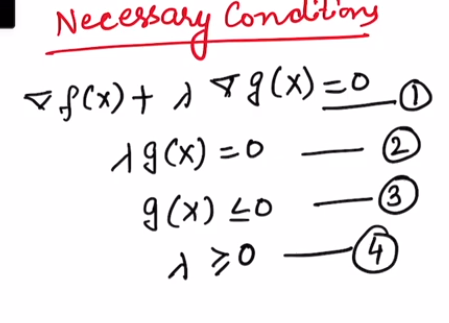 Necessary Conditions
∇f(x) + λ ∇g(x) = 0 — ①
λ g(x) = 0 — ②
g(x) ≤ 0 — ③
λ ≥ 0 — ④